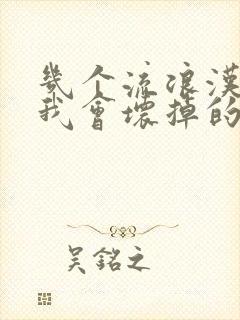 幾个流浪漢
我會壞掉的
吴銘之